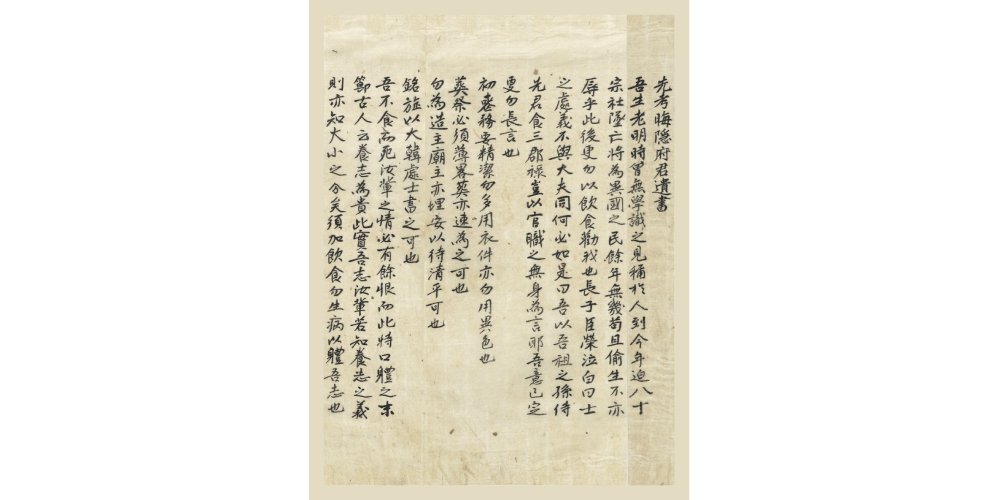 先考晦隱府君遺書
吾生老明時曾無學識之見稱於人到今年迫八十
宗社墜亡將為異國之民餘年無幾苟且偷生不亦
辱乎此後更勿以飲食勸我也長子臣榮泣白曰士
之處義不與大夫同何必如是曰吾以吾祖之孫侍
先君食三郡祿豈以官職之無身為言耶吾意已定
更勿長言也
初喪務要精潔勿多用衣件亦勿用異色也
葬祭必須薄畧葬亦速為之可也
勿為造主廟主亦埋安以待清平可也
銘旌以大韓處士書之可也
吾不食而死汝輩之情必有餘恨而此特口軆之末
節古人云養志為貴此實吾志汝輩若知養志之義
則亦知大小之分矣須加飲食勿生病以軆吾志也